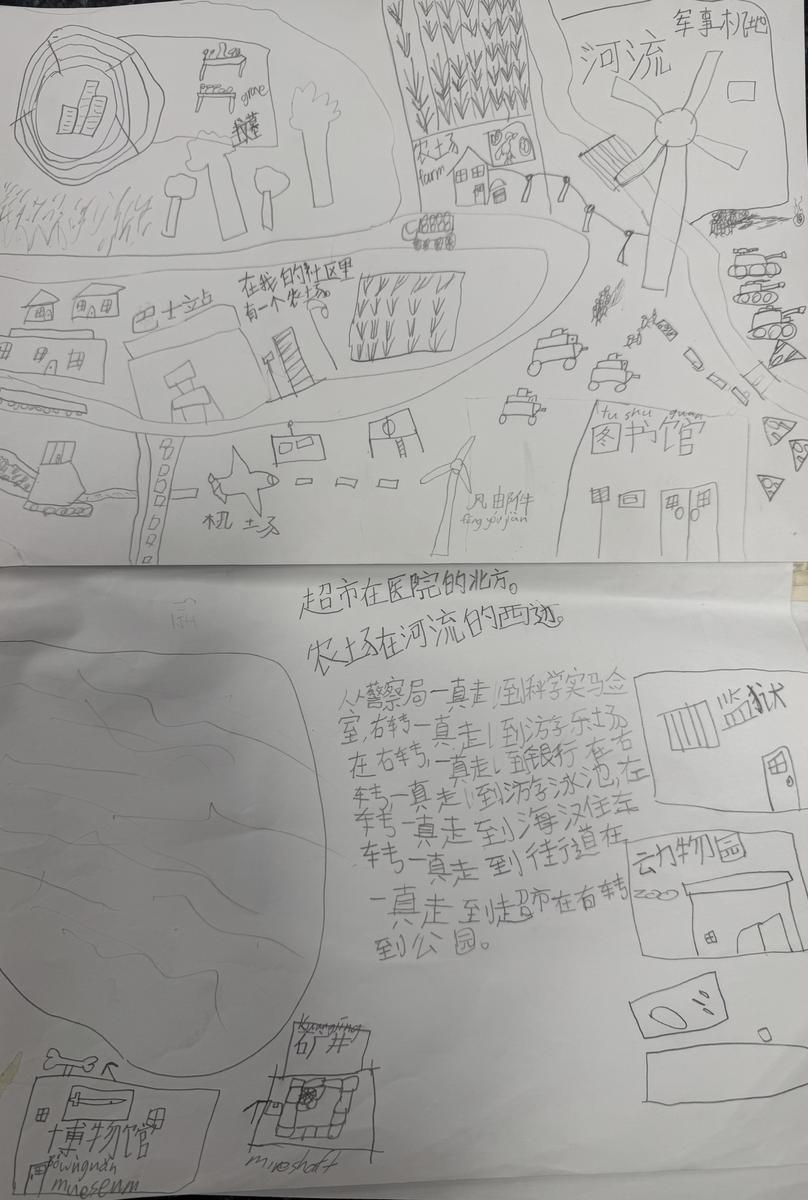 军事机地
河流
grave
坟墓
农土场
farm
在我的社区里
有一个农场
巴士立占
tu shu guan
图书馆
机土场
风由阝件
fēng yóu jiàn
超市在医院的北方。
农土场在河流的西边。
从警察局一真走到科学实马佥
室,右转一真走到游乐土场
在右转,一真走到银行在右
转,一真走到游泳池,在
转一真走到海汉住左
转一真走到街道在
一真走到超市在右转
到公园。
监狱
动物园
zoo
kuangjing
矿井
mineshaft
博物馆
bówùguǎn
mueseum